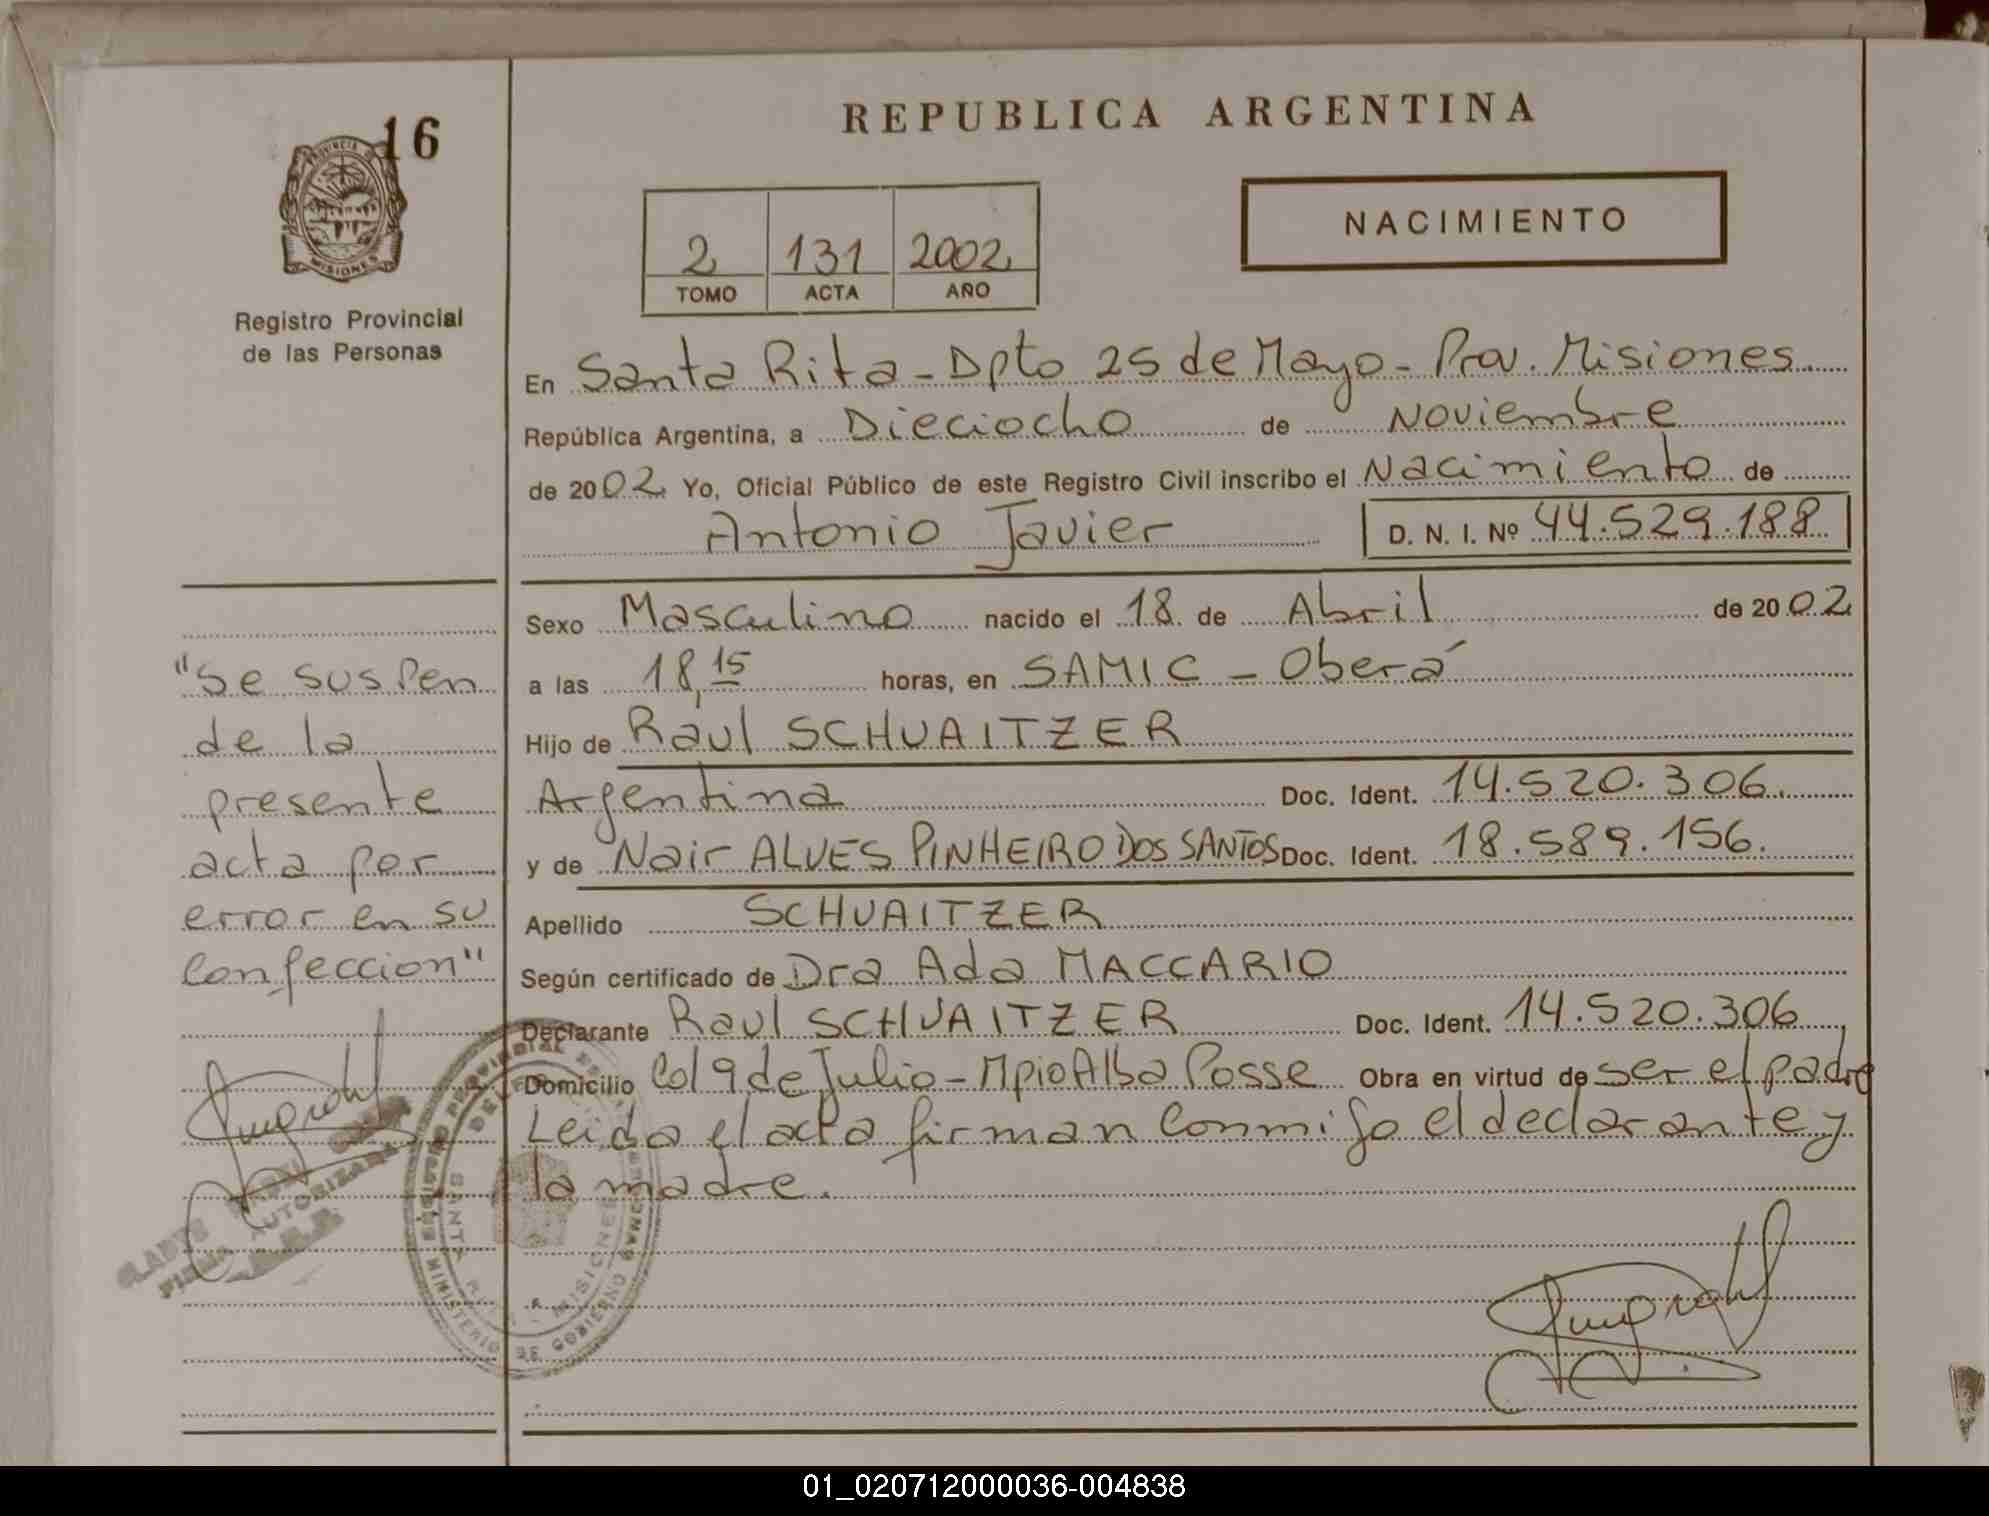 REPUBLICA ARGENTINA
16
PROVINCIA DE
MISIONES
Registro Provincial
de las Personas
NACIMIENTO
2 131 2002
TOMO ACTA AÑO
En Santa Rita - Dpto 25 de Mayo - Prov. Misiones
República Argentina, a Dieciocho de Noviembre
de 2002 Yo, Oficial Público de este Registro Civil inscribo el Nacimiento de
Antonio Javier D. N. I. Nº 44.529.188
Sexo Masculino nacido el 18 de Abril de 2002
a las 18,15 horas, en SAMIC - Oberá
Hijo de Raul SCHUAITZER
Argentina Doc. Ident. 14.520.306.
y de Nair ALVES PINHEIRO DOS SANTOS Doc. Ident. 18.589.156.
Apellido SCHUAITZER
Según certificado de Dra Ada MACCARIO
Declarante Raul SCHUAITZER Doc. Ident. 14.520.306
Domicilio Col 9 de Julio - Mpio Alba Posse Obra en virtud de ser el padre
Leida el acta firman conmigo el declarante y
la madre.
"Se suspen
de la
presente
acta por
error en su
confeccion"
GLADYS
FIRMA AUTORIZADA
MINISTERIO DE GOBIERNO
SANTA RITA - MISIONES
01_020712000036-004838